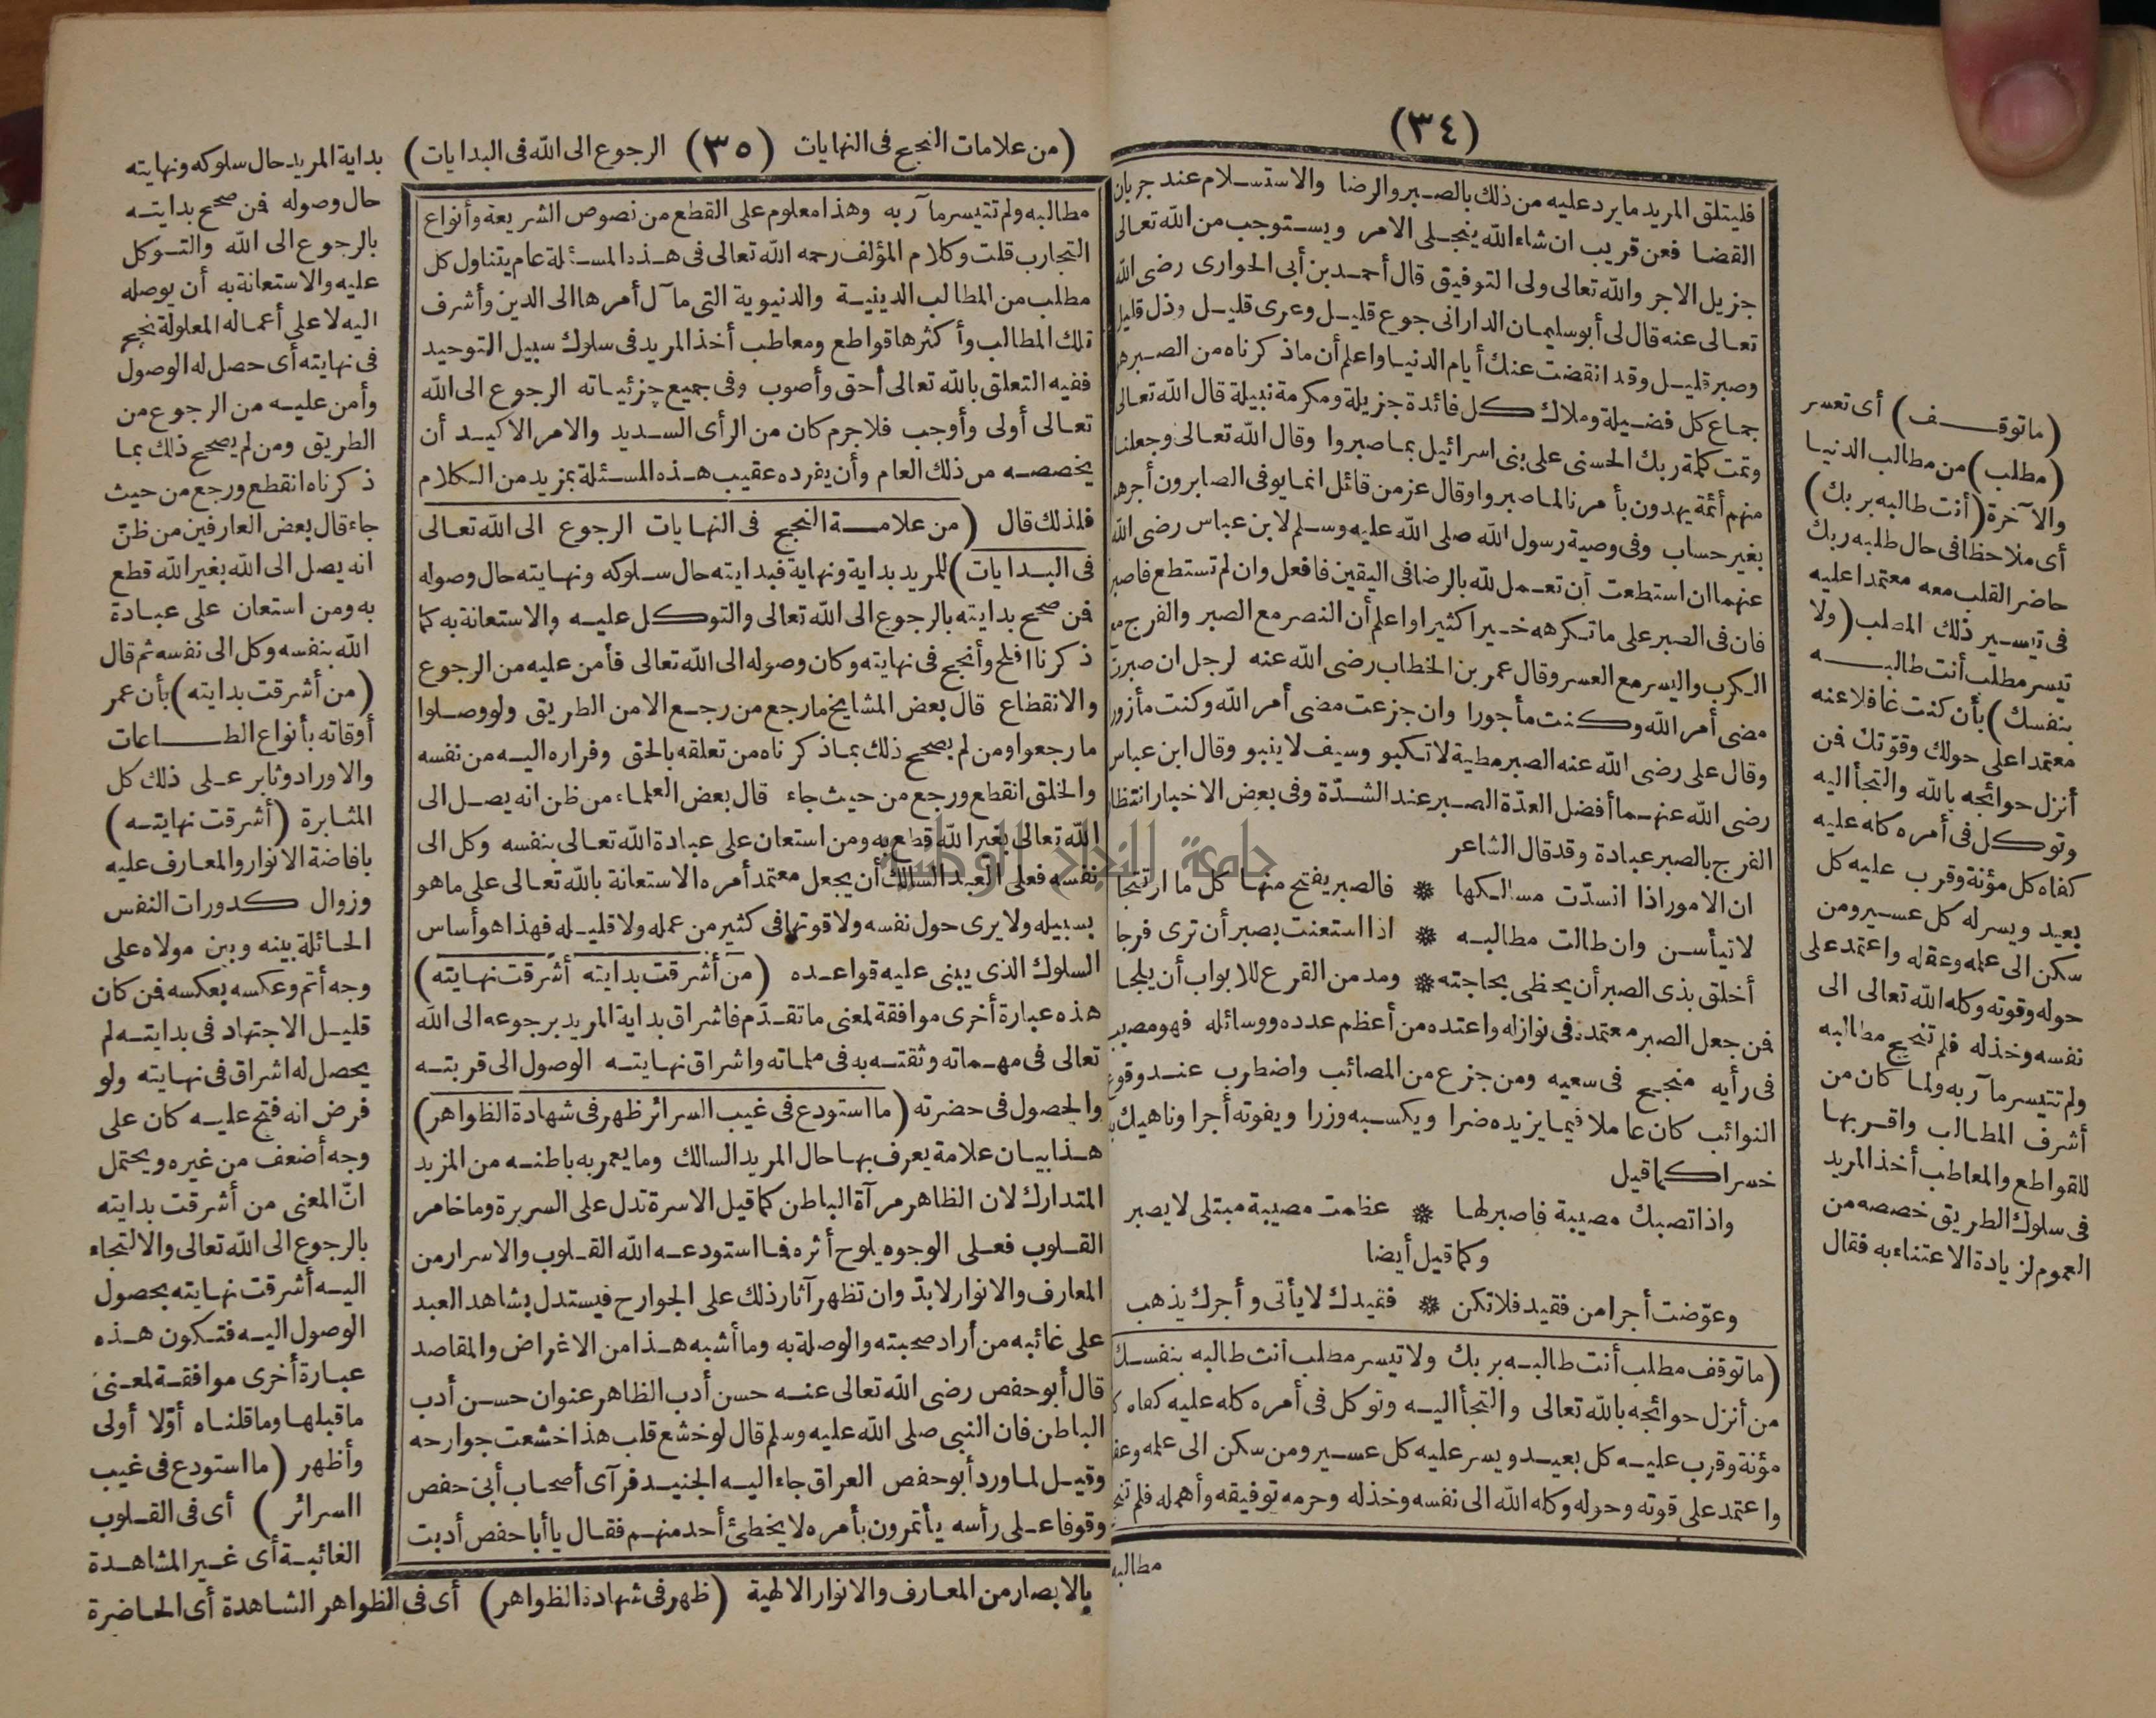 (٣٤)
فليتلق المريد ما يرد عليه من ذلك بالصبر والرضا والاستسلام عند جريان
القضا فعن قريب ان شاء الله ينجلى الامر ويستوجب من الله تعالى
جزيل الاجر والله تعالى ولى التوفيق قال أحمد بن أبى الحوارى رضى الله
تعالى عنه قال لى أبو سليمان الدارانى جوع قليل وعرى قليل وذل قليل
وصبر قليل وقد انقضت عنك أيام الدنيا واعلم أن ماذكرناه من الصبر هو
جماع كل فضيلة وملاك كل فائدة جزيلة ومكرمة نبيلة قال الله تعالى
وتمت كلمة ربك الحسنى على بنى اسرائيل بما صبروا وقال الله تعالى وجعلنا
منهم أئمة يهدون بأمرنا لما صبروا وقال عز من قائل انما يوفى الصابرون أجرهم
بغير حساب وفى وصية رسول الله صلى الله عليه وسلم لابن عباس رضى الله
عنهما ان استطعت أن تعمل لله بالرضا فى اليقين فافعل وان لم تستطع فاصبر
فان فى الصبر على ماتكرهه خيرا كثيرا واعلم أن النصر مع الصبر والفرج مع
الكرب واليسر مع العسر وقال عمر بن الخطاب رضى الله عنه لرجل ان صبرت
مضى أمر الله وكنت مأجورا وان جزعت مضى أمر الله وكنت مأزورا
وقال على رضى الله عنه الصبر مطية لاتكبو وسيف لاينبو وقال ابن عباس
رضى الله عنهما أفضل العدّة الصبر عند الشدّة وفى بعض الاخبار انتظار
الفرج بالصبر عبادة وقد قال الشاعر
ان الامور اذا انسدّت مسالكها ❋ فالصبر يفتح منها كل ما ارتتجا
لاتيأسن وان طالت مطالبه ❋ اذا استعنت بصبر أن ترى فرجا
أخلق بذى الصبر أن يحظى بحاجته ❋ ومدمن القرع للابواب أن يلجا
فمن جعل الصبر معتمده فى نوازله واعتده من أعظم عدده ووسائله فهو مصيب
فى رأيه منجح فى سعيه ومن جزع من المصائب واضطرب عند وقوع
النوائب كان عاملا فيما يزيده ضرا ويكسبه وزرا ويفوته أجرا وناهيك به
خسرا كما قيل
واذا تصبك مصيبة فاصبر لها ❋ عظمت مصيبة مبتلى لايصبر
وكما قيل أيضا
وعوّضت أجرا من فقيد فلا تكن ❋ فقيدك لا يأتى وأجرك يذهب
(ماتوقف مطلب أنت طالبه بربك ولا تيسر مطلب أنت طالبه بنفسك
من أنزل حوائجه بالله تعالى والتجأ اليه وتوكل فى أمره كله عليه كفاه كل
مؤنة وقرب عليه كل بعيد ويسر عليه كل عسير ومن سكن الى علمه وعقله
واعتمد على قوته وحوله وكله الله الى نفسه وخذله وحرمه توفيقه وأهمله فلم تنجح
مطالبه
(ماتوقف) أى تعسر
(مطلب) من مطالب الدنيا
والآخرة (أنت طالبه بربك)
أى ملاحظا فى حال طلبه ربك
حاضر القلب معه معتمدا عليه
فى تيسير ذلك المطلب (ولا
تيسر مطلب أنت طالبه
بنفسك) بأن كنت غافلا عنه
معتمدا على حولك وقوّتك فمن
أنزل حوائجه بالله والتجأ اليه
وتوكل فى أمره كله عليه
كفاه كل مؤنة وقرب عليه كل
بعيد ويسر له كل عسير ومن
سكن الى علمه وعقله واعتمد على
حوله وقوته وكله الله تعالى الى
نفسه وخذله فلم تنجح مطالبه
ولم تتيسر مآربه ولما كان من
أشرف المطالب وأقربها
للقواطع والمعاطب أخذ المريد
فى سلوك الطريق خصصه من
العموم لزيادة الاعتناء به فقال
(من علامات النجح فى النهايات (٣٥) الرجوع الى الله فى البدايات)
مطالبه ولم تتيسر مآربه وهذا معلوم على القطع من نصوص الشريعة وأنواع
التجارب قلت وكلام المؤلف رحمه الله تعالى فى هذه المسئلة عام يتناول كل
مطلب من المطالب الدينية والدنيوية التى مآل أمرها الى الدين وأشرف
تلك المطالب وأكثرها قواطع ومعاطب أخذ المريد فى سلوك سبيل التوحيد
ففيه التعلق بالله تعالى أحق وأصوب وفى جميع جزئياته الرجوع الى الله
تعالى أولى وأوجب فلا جرم كان من الرأى السديد والامر الاكيد أن
يخصصه من ذلك العام وأن يفرده عقيب هذه المسئلة بمزيد من الكلام
فلذلك قال (من علامة النجح فى النهايات الرجوع الى الله تعالى
فى البدايات) للمريد بداية ونهاية فبدايته حال سلوكه ونهايته حال وصوله
فمن صحح بدايته بالرجوع الى الله تعالى والتوكل عليه والاستعانة به كما
ذكرنا افلح وأنجح فى نهايته وكان وصوله الى الله تعالى فأمن عليه من الرجوع
والانقطاع قال بعض المشايخ مارجع من رجع الا من الطريق ولو وصلوا
مارجعوا ومن لم يصحح ذلك بما ذكرناه من تعلقه بالحق وفراره اليه من نفسه
والخلق انقطع ورجع من حيث جاء قال بعض العلماء من ظن انه يصل الى
الله تعالى بغير الله قطع به ومن استعان على عبادة الله تعالى بنفسه وكل الى
نفسه فعلى العبد السالك أن يجعل معتمد أمره الاستعانة بالله تعالى على ماهو
بسبيله ولا يرى حول نفسه ولا قوتها فى كثير من عمله ولا قليله فهذا هو أساس
السلوك الذى يبنى عليه قواعده (من أشرقت بدايته أشرقت نهايته)
هذه عبارة أخرى موافقة لمعنى ماتقدّم فاشراق بداية المريد برجوعه الى الله
تعالى فى مهماته وثقته به فى ملماته واشراق نهايته الوصول الى قربته
والحصول فى حضرته (ما استودع فى غيب السرائر ظهر فى شهادة الظواهر)
هذا بيان علامة يعرف بها حال المريد السالك وما يعمر به باطنه من المزيد
المتدارك لان الظاهر مرآة الباطن كما قيل الاسرة تدل على السريرة وما خامر
القلوب فعلى الوجوه يلوح أثره فما استودعه الله القلوب والاسرار من
المعارف والانوار لابدّ وان تظهر آثار ذلك على الجوارح فيستدل بشاهد العبد
على غائبه من أراد صحبته والوصلة به وما أشبه هذا من الاغراض والمقاصد
قال أبو حفص رضى الله تعالى عنه حسن أدب الظاهر عنوان حسن أدب
الباطن فان النبى صلى الله عليه وسلم قال لو خشع قلب هذا خشعت جوارحه
وقيل لما ورد أبو حفص العراق جاء اليه الجنيد فرآى أصحاب أبى حفص
وقوفا على رأسه يأتمرون بأمره لا يخطئ أحد منهم فقال يا أبا حفص أدبت
بداية المريد حال سلوكه ونهايته
حال وصوله فمن صحح بدايته
بالرجوع الى الله والتوكل
عليه والاستعانة به أن يوصله
اليه لا على أعماله المعلولة نجح
فى نهايته أى حصل له الوصول
وأمن عليه من الرجوع من
الطريق ومن لم يصحح ذلك بما
ذكرناه انقطع ورجع من حيث
جاء قال بعض العارفين من ظنّ
انه يصل الى الله بغير الله قطع
به ومن استعان على عبادة
الله بنفسه وكل الى نفسه ثم قال
(من أشرقت بدايته) بأن عمر
أوقاته بأنواع الطاعات
والاوراد وثابر على ذلك كل
المثابرة (أشرقت نهايته)
بافاضة الانوار والمعارف عليه
وزوال كدورات النفس
الحائلة بينه وبين مولاه على
وجه أتم وعكسه بعكسه فمن كان
قليل الاجتهاد فى بدايته لم
يحصل له اشراق فى نهايته ولو
فرض انه فتح عليه كان على
وجه أضعف من غيره ويحتمل
انّ المعنى من أشرقت بدايته
بالرجوع الى الله تعالى والالتجاء
اليه أشرقت نهايته بحصول
الوصول اليه فتكون هذه
عبارة أخرى موافقة لمعنى
ماقبلها وما قلناه أوّلا أولى
وأظهر (ما استودع فى غيب
السرائر) أى فى القلوب
الغائبة أى غير المشاهدة
بالابصار من المعارف والانوار الالهية (ظهر فى شهادة الظواهر) أى فى الظواهر الشاهدة أى الحاضرة
جامعة النجاح الوطنية